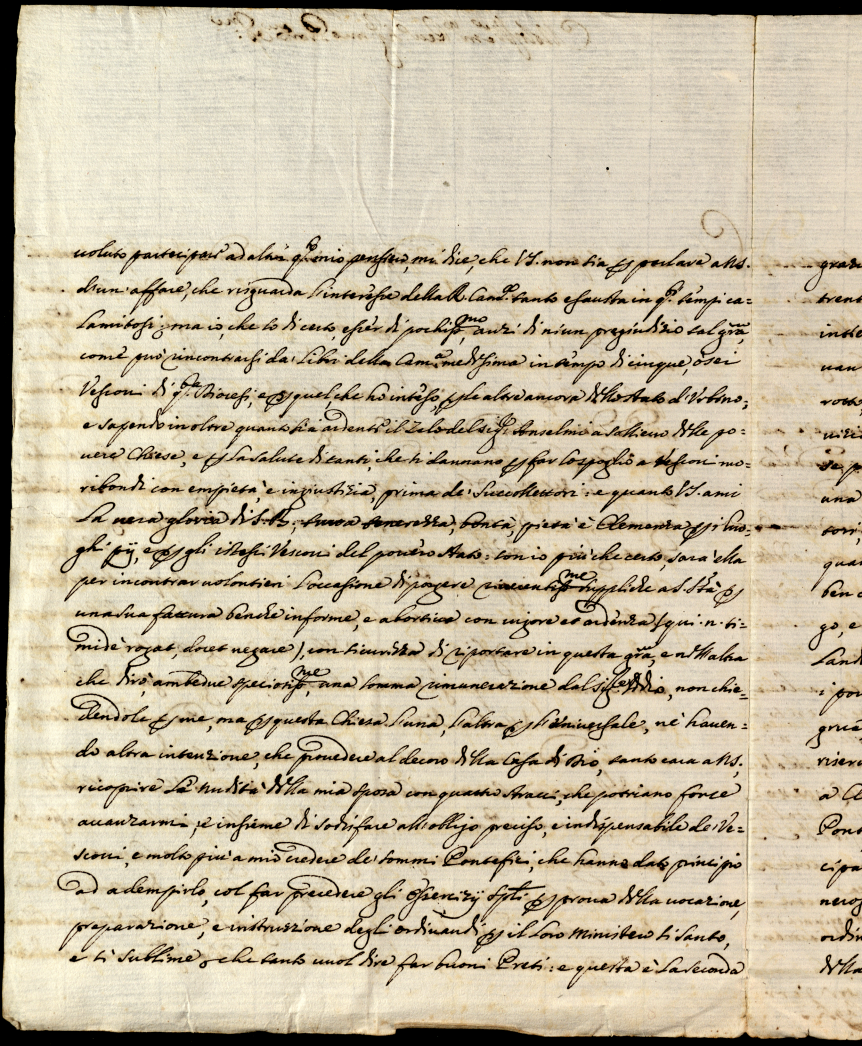 uoluto partecipare ad altri q.o mio pensiero, mi dice, che VS. non sia p parlare a NS.
d'un affare, che risguarda l'interesse della R. Cam.a tanto esausta in q.ti tempi ca=
lamitosi: ma io, che so di certo, esser di pochiss.mo, anzi di niun pregiudizio tal gra,
come può rincontrarsi da i libri della Cam.a medesima in tempo di cinque, ò sei
Vescoui di q.ta Diocesi, e p quel, che ho inteso, p le altre ancora dello Stato d'Vrbino;
e sapendo in oltre quanto sia ardente il Zelo del sig.r Anselmi a sollieuo delle po=
uere Chiese, e p la salute di tanti, che si dannano p far lo spoglio a Vescoui mo=
ribondi con empietà, e ingiustizia, prima de' Succollettori: e quanto VS. ami
la uera gloria di tenerezza, bontà, pietà e Clemenza p i luo=
ghi pij, e p gli istessi Vescoui del pouero Stato: son io più che certo, sarà ella
per incontrar uolontieri l'occasione di porgere riuerentiss.me suppliche a S. S.tà p
una sua fattura benche informe, e abortiua con uigore et ardenza (qui .n. ti=
midè rogat, docet negare), con sicurezza di riportare in questa gra, e nell'altra
che dirò, ambedue speciosiss.me, una somma rimunerazione dal Dio, non chie=
dendole p me, ma p questa Chiesa l'una, l'altra p l'Vniuersale, nè hauen=
do altra intenzione, che prouedere al decoro della Casa di Dio, tanto cara a NS.
ricoprire la nudità della mia sposa con quattro stracci, che potriano forse
auanzarmi; e insieme di sodisfare all'obligo preciso, e indispensabile de' Ve=
scoui, e molto più a mio credere de' sommi Pontefici, che hanno dato principio
ad adempirlo, col far precedere gli essercizij sp.li p proua della uocazione,
preparazione, e instruzione degli ordinandi p il loro ministero si santo,
e si sublime, che tanto uuol dire far buoni Preti: e questa è la seconda